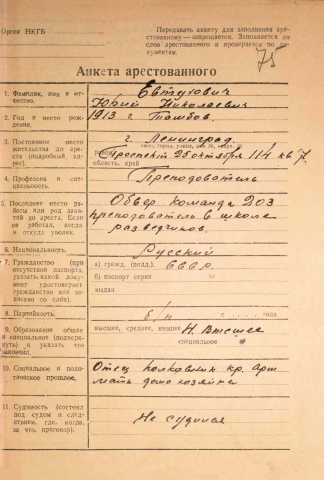 Орган НКГБ
Передавать анкету для заполнения аре-
стованному — запрещается. Заполняется со
слов арестованного и проверяется по до-
кументам.
75
Анкета арестованного
1. Фамилия, имя и от-
чество.
Евтухович
Юрий Николаевич
2. Год и место рож-
дения.
1913 г. Тамбов.
3. Постоянное место
жительства до аре-
ста (подробный ад-
рес).
г. Ленинград.
Проспект 25 октября 114 кв 7.
область, край
4. Профессия и спе-
циальность.
Преподаватель
5. Последнее место ра-
боты или род заня-
тий до ареста. Если
не работал, когда
и откуда уволен.
Абвер команда 203
преподаватель в школе
разведчиков.
6. Национальность.
Русский
7. Гражданство (при
отсутствии паспорта,
указать какой доку-
мент удостоверяет
гражданство или за-
писано со слов).
а) гражд. (подд.). СССР.
б) паспорт серии №
выдан
8. Партийность.
б/п
9. Образование общее
и специальное (подчерк-
нуть и указать что
закончил).
высшее, среднее, низшее Н. Высшее
специальное
10. Социальное и поли-
тическое прошлое.
Отец полковник кр. арт
мать домохозяйка
11. Судимость (состоял
под судом и след-
ствием, где, когда,
за что, приговор).
Не судился